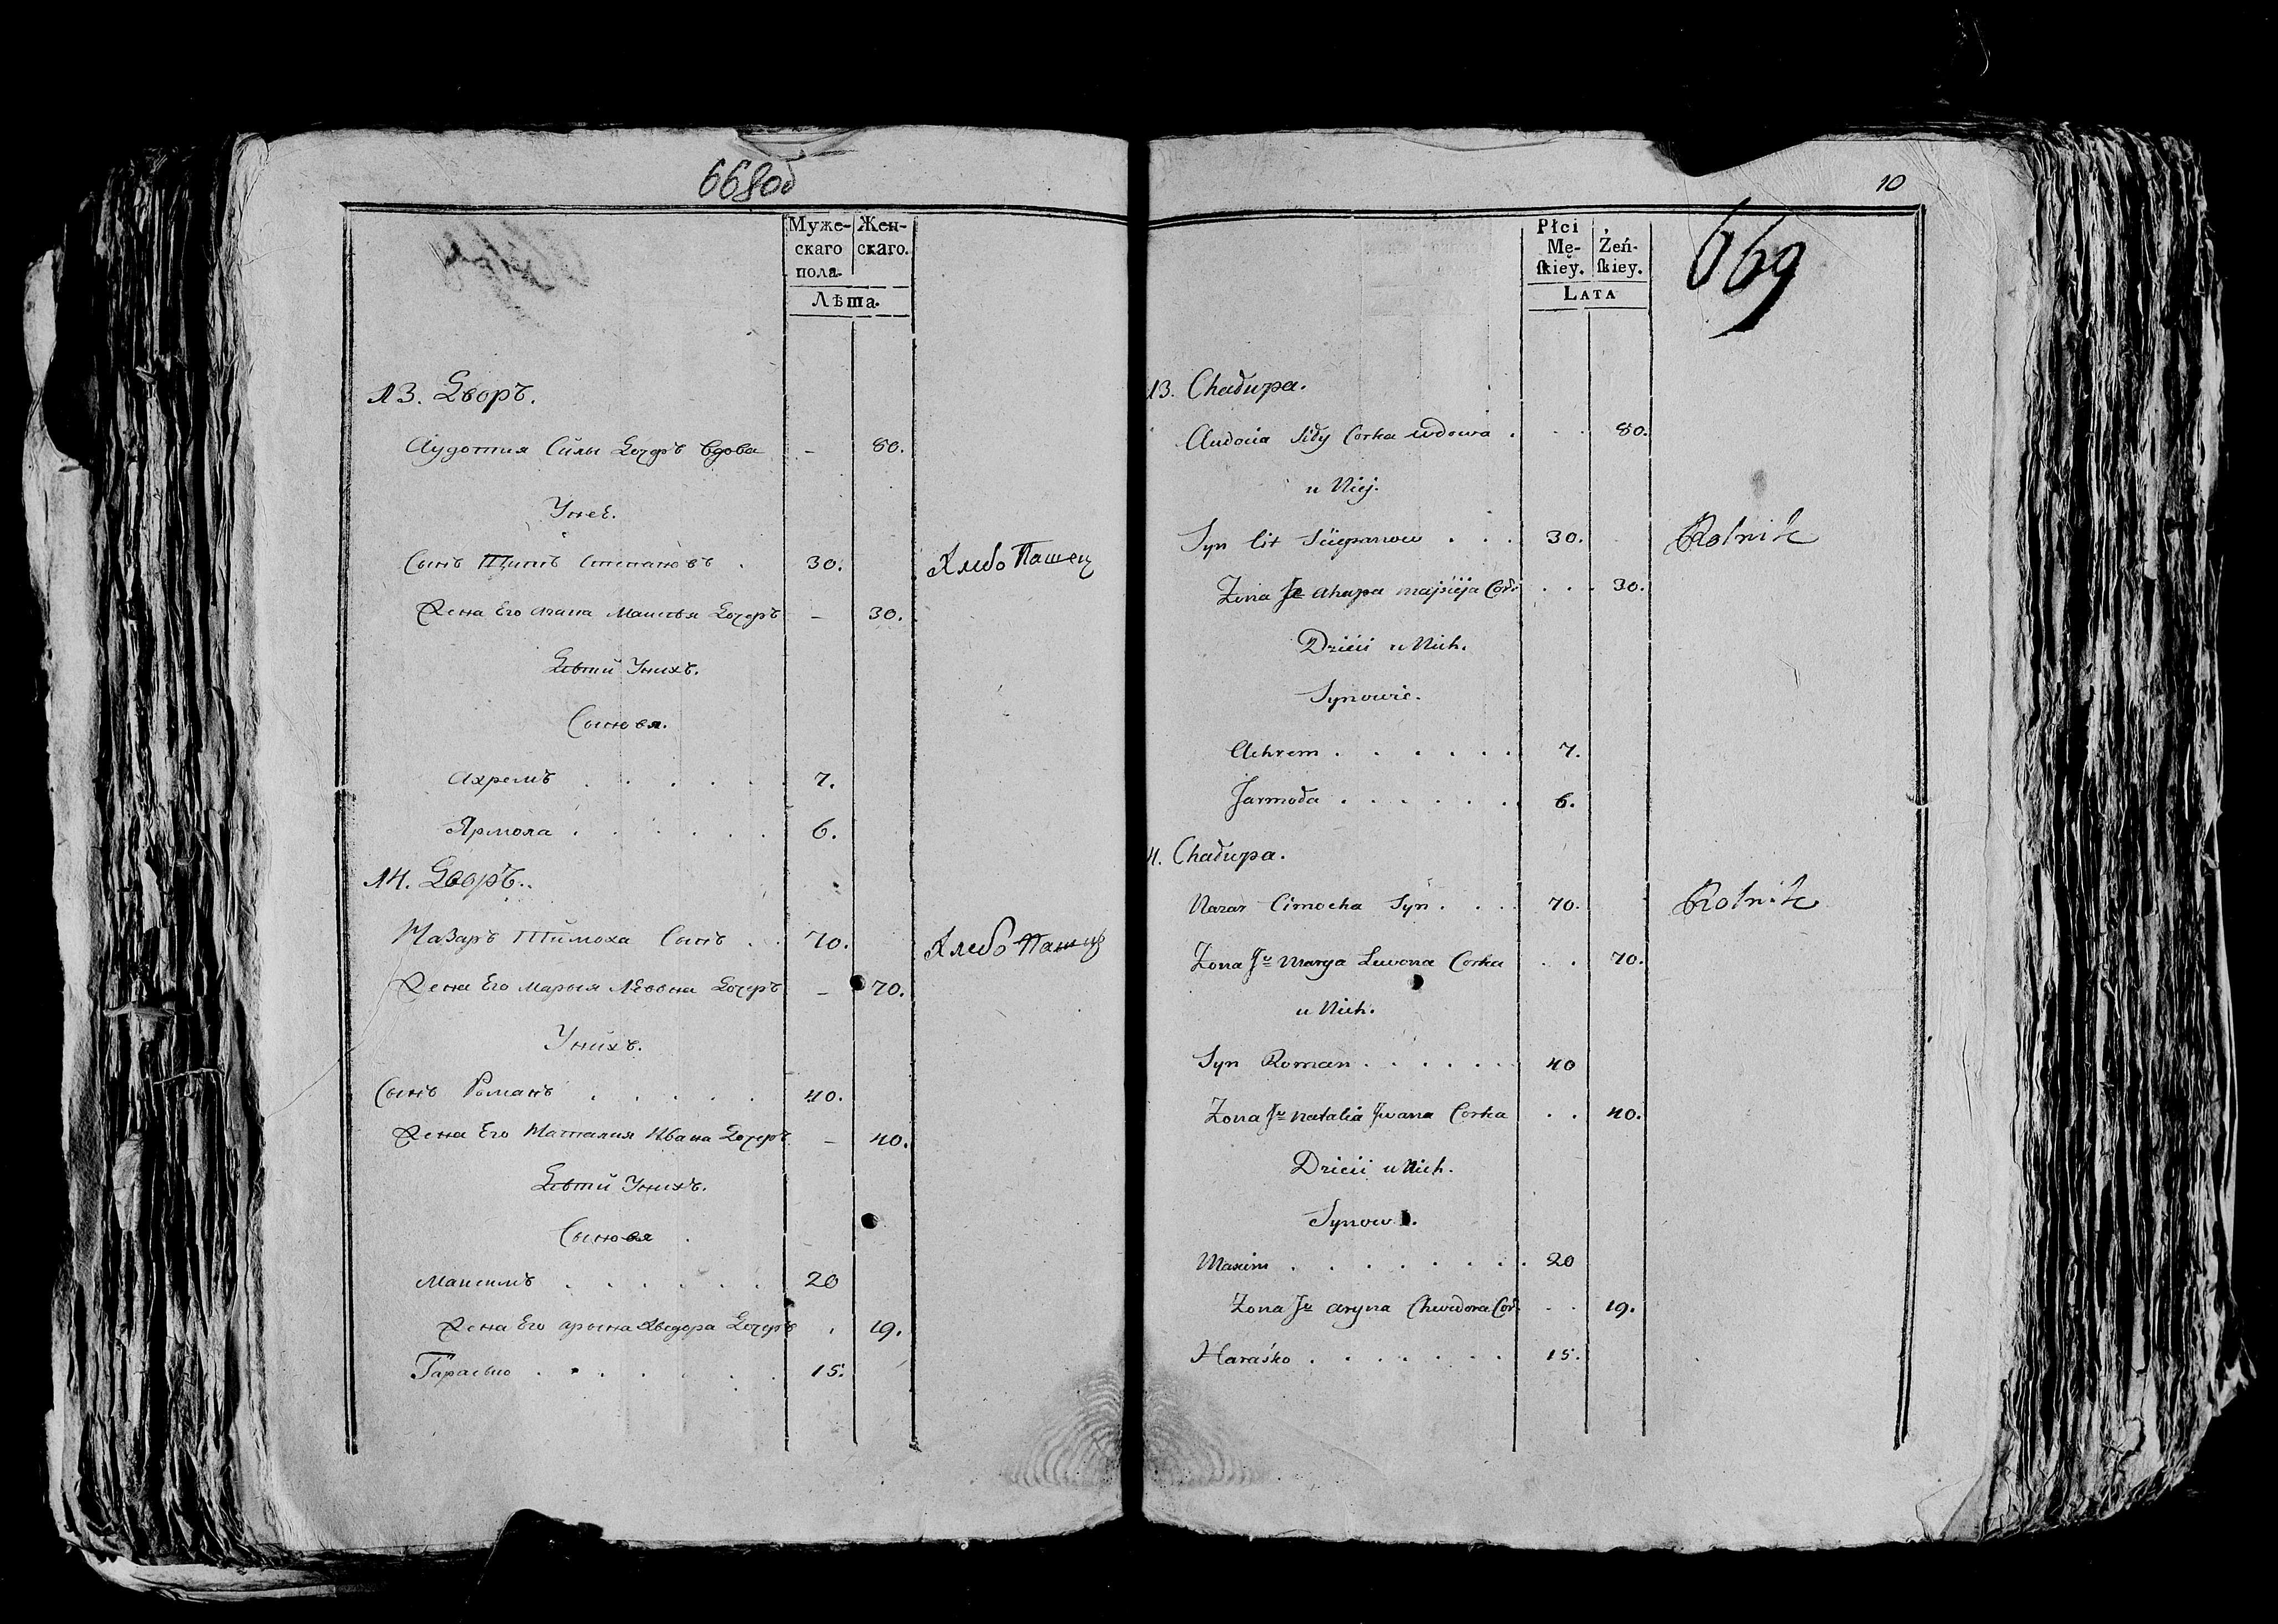 668об
Муже-
скаго
пола.
Жен-
скаго.
Лѣта.
13. Дворъ.
Аудотия Силы Дочеръ вдова - 80.
Унеѣ.
Сынъ Титъ Степановъ . 30. Хлебо Пашец
Жена Его агапа Маисѣя Дочеръ - 30.
Дѣти Унихъ.
Сыновя.
Ахремъ . . . . . 7.
Ярмола . . . . . 6.
14. Дворъ.
Назаръ Тимоха Сынъ . . 70. Хлебо Пашец
Жена Его Марыя Левона Дочеръ - 70.
Унихъ.
Сынъ Романъ . . . . . 40.
Жена Его Наталия Ивана Дочеръ - 40.
Дѣти Унихъ.
Сыновя
Максимъ . . . . . . 20
Жена Его арына Хведора Дочеръ . 19.
Гарасько . . . . . . . 15.
10
669
Płci
Mę-
skiey.
Żeń-
skiey.
LATA
13. Chałupa.
Audocia Siły Corka wdowa . . . 80.
u Niej.
Syn Cit Sciepanow . . . 30. Rolnik
Zona Je ahapa majsieja Cor . . . 30.
Dzieci u Nich.
Synowie.
Achrem . . . . . . 7.
Jarmoła . . . . . . 6.
4. Chałupa.
Nazar Cimocha Syn . . . 70. Rolnik
Zona Je Marya Lewona Corka . . 70.
u Nich.
Syn Roman . . . . . . 40
Zona Je Natalia Jwana Corka . . 40.
Dzieci u Nich.
Maxim . . . . . . . . 20
Zona Je aryna Chwedora Cor . . 19.
Haraśko . . . . . . . 15.